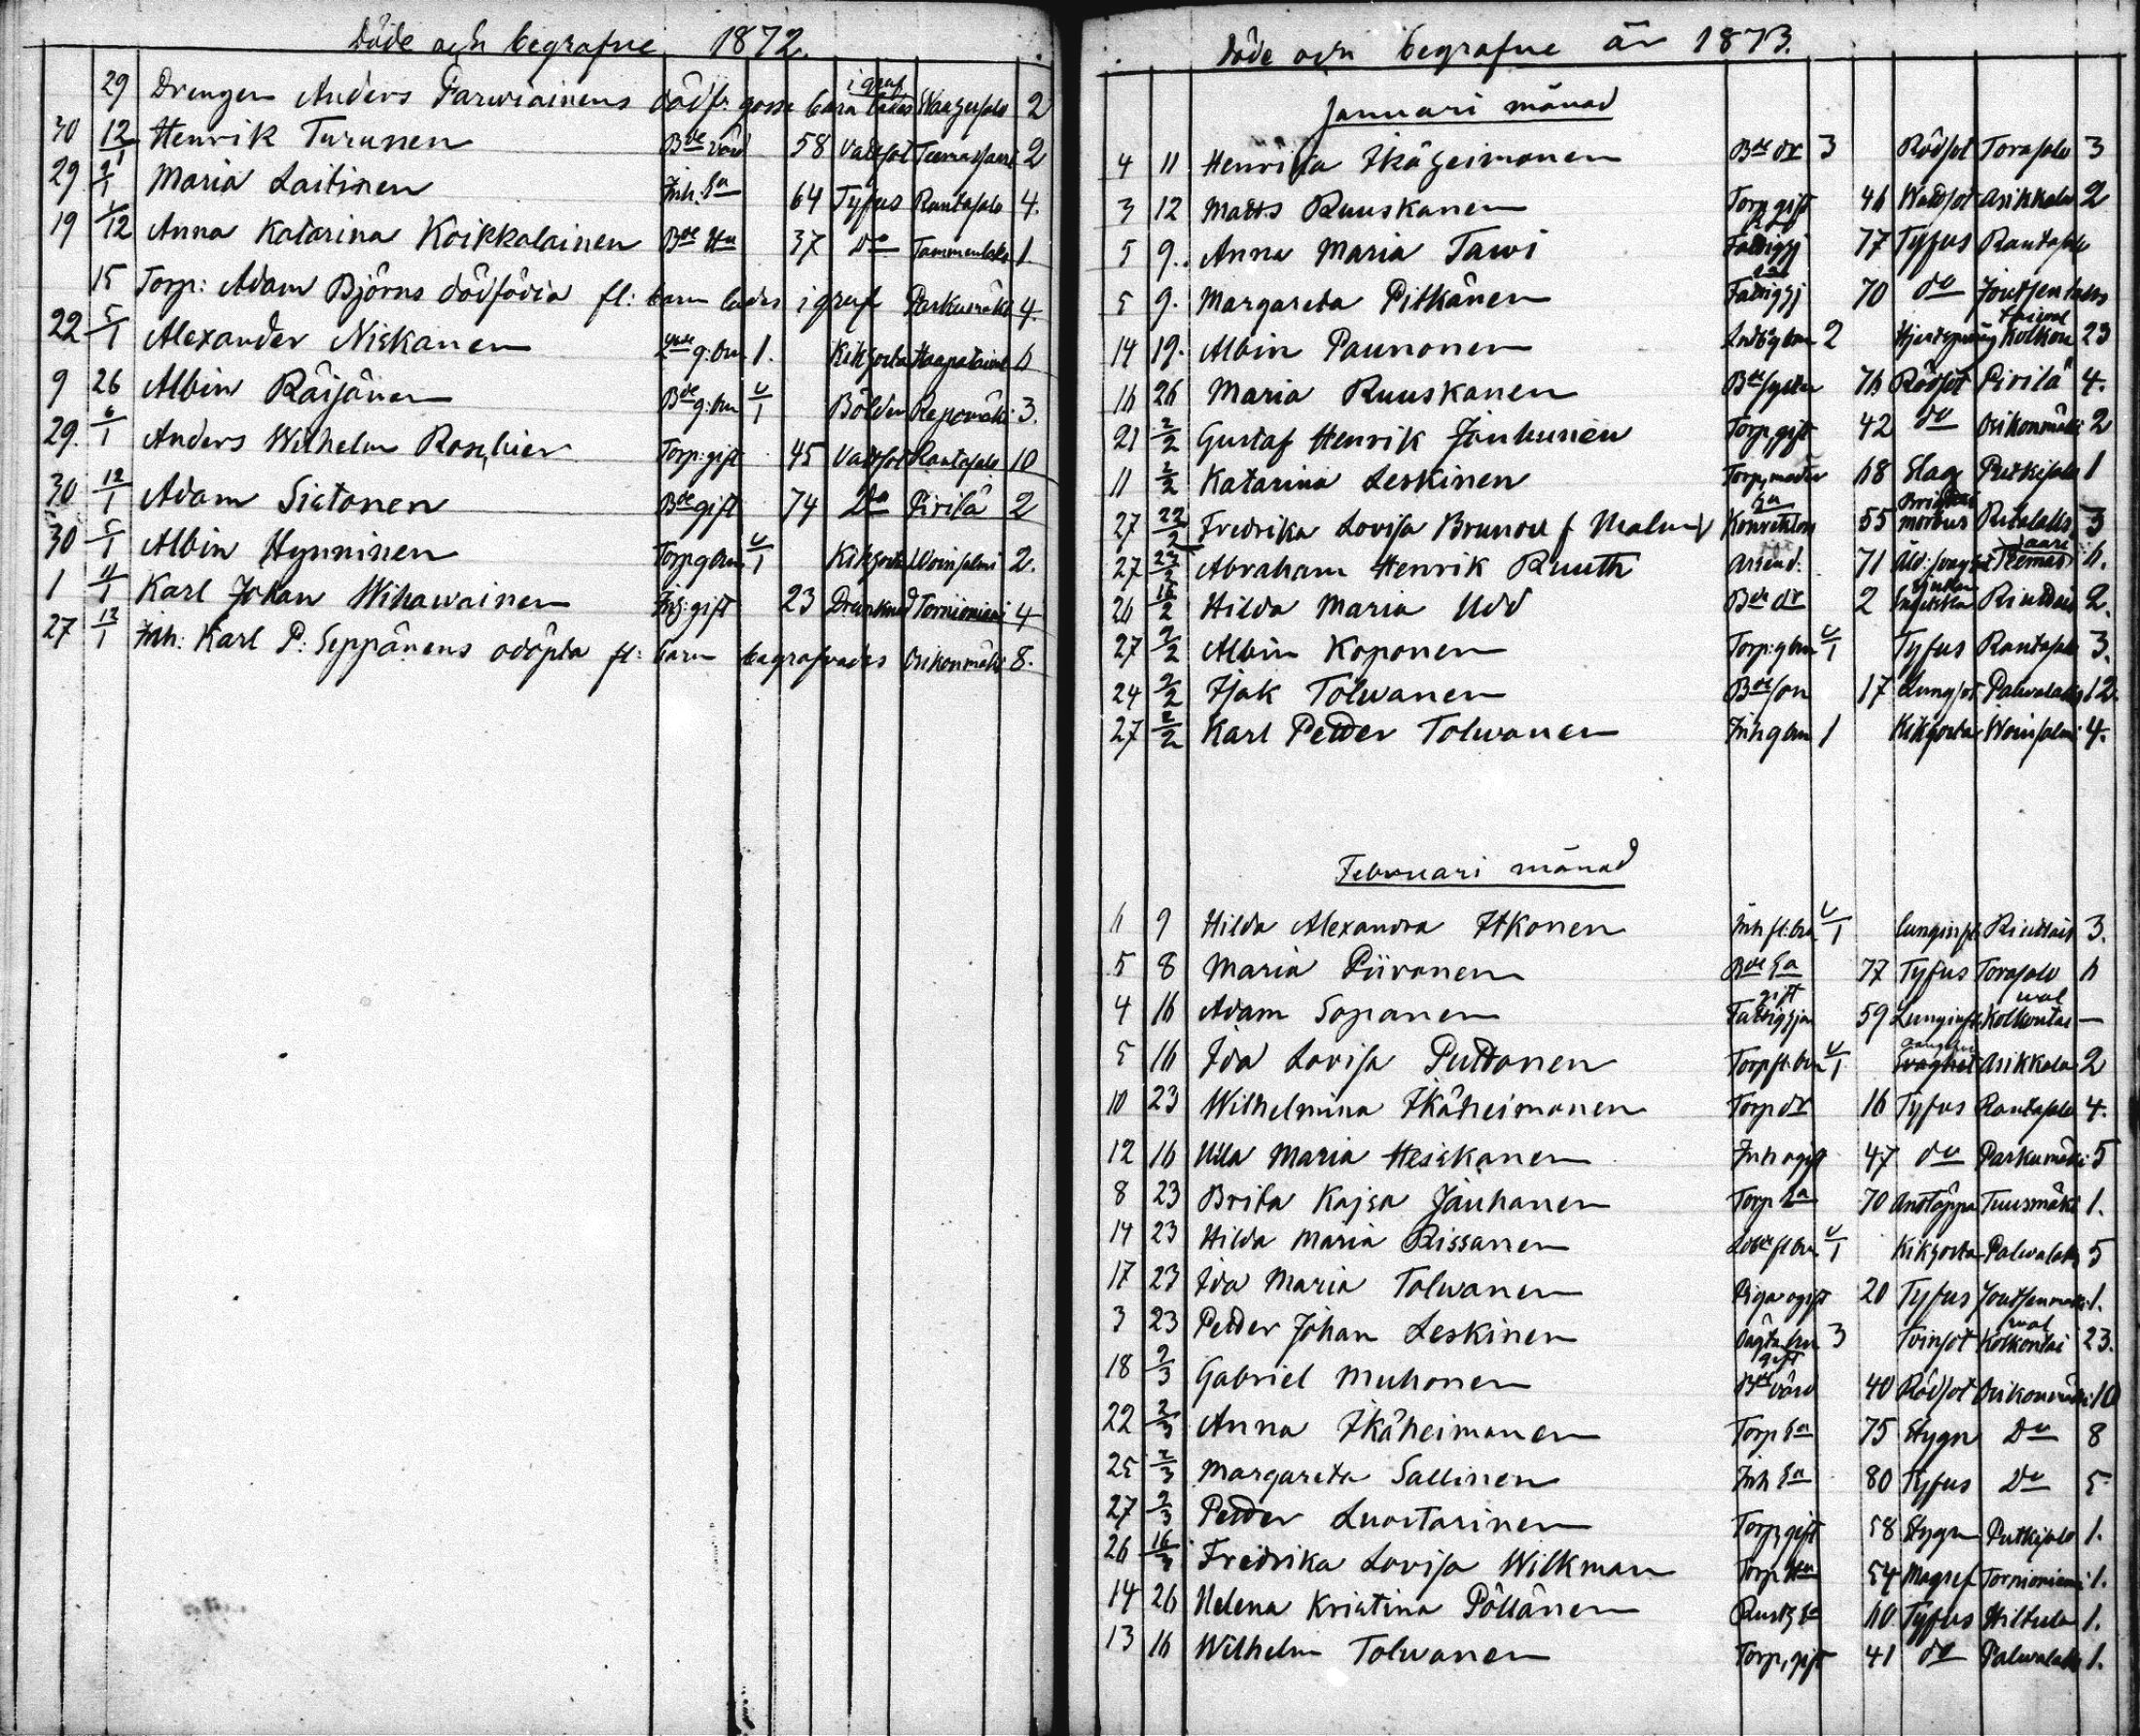 Döde och begrafne 1872.
29 Drengen Anders Parwiainens dödf: gosse barn lades i graf 2
30 12/1 Henrik Turunen Bde värd 58 Vattsot 2
29 9/1 Maria Laitinen Inh: Ea 64 Tyfus Rantasalo 4.
19 1/12 Anna Katarina Koikkalainen Bde Hu 37 Do Tammenlaks 1
15 Torp: Adam Björns dödfödda fl: barn lades i graf Parkumäki 4.
22 5/1 Alexander Niskanen g: bn 1. Kikhosta Haapataival 6
9 26 Albin Räisänen Bde g: bn 1/1 Bölder Repomäki 3.
29. 6/1 Anders Wilhelm Roschier Torp: gift 45 Vattsot Rantasalo 10
30 12/1 Adam Sistonen Bde gift 74 Do Pirilä 2
30 5/1 Albin Hynninen Torp g bn Kikhosta Woinsalmi 2.
1 11/1 Karl Johan Wihawainen Inh: gift 23 Drunknad Tornioniemi 4
27 12/1 Inh: Karl P: Seppänens odöpta fl: barn begrafvades Osikonmäki 8.
Döde och begrafne år 1873.
Januari månad
4 11 Henrika Ikäheimonen Bde dr 3 Rödsot Torasalo 3
3 12 Matts Ruuskanen Torp gift 46 Wattsot Asikkala 2
5 9. Anna Maria Tawi Fattighj 77 Tyfus Rantasalo
5 9. Margareta Pitkänen Fattighj 70 do Joutsenlaks
14 19. Albin Paunonen 2 Kolkon taival 23
16 26 Maria Ruuskanen Bde syster 76 Rödsot Pirilä 4.
21 2/2 Gustaf Henrik Jäuhunen Torp, gift 42 do Osikonmäki 2
11 2/2 Katarina Leskinen Torp, moder 68 Slag Putkisalo 1
27 22/2 Fredrika Lovisa Brunou f Malm 55 Brightii morbus 3
27 23/2 Abraham Henrik Ruuth Arrend: 71 Ål: svaghet 6.
26 16/2 Hilda Maria Udd Bde dr 2 Engelska sjukan 2.
27 9/2 Albin Koponen Torp: g bn 1/1 Tyfus Rantasalo 3.
24 9/2 Isak Tolwanen Bde son 17 Lungsot Palwalaks 12.
27 2/2 Karl Petter Tolwanen Inh g bn 1 Kikhosta Woinsalmi 4.
Februari månad
6 9 Hilda Alexandra Itkonen Inh fl: bn 1/1 Lunginfl: 3.
5 8 Maria Piironen Bde Ea 77 Tyfus Torasalo 6
4 16 Adam Sopanen gift Fattighjon 59 Lunginfl: Kolkontaiwal —
5 16 Ida Lovisa Puttonen Torp fl: bn 1/1 svaghet Asikkala 2
10 23 Wilhelmina Ikäheimonen Torp dr 16 Tyfus Rantasalo 4.
12 16 Ulla Maria Heiskanen Inh ogift 47 do Parkumäki 5
8 23 Brita Kajsa Jäuhanen Torp Ea 70 Andtäppa Tuusmäki 1.
14 23 Hilda Maria Rissanen fl bn 1/1 Kikhosta Palwalaks 5
17 23 Ida Maria Tolwanen Piga ogift 20 Tyfus Joutsenmäki 1.
3 23 Petter Johan Leskinen 3 Tvinsot Kolkontaiwal 23.
18 9/3 Gabriel Muhonen gift Bde värd 40 Rödsot Osikonmäki 10
22 2/3 Anna Ikäheimonen Torp Ea 75 Stygn Do 8
25 2/3 Margareta Sallinen Inh Ea 80 Tyfus Do 5
27 9/3 Petter Luostarinen Torp, gift 58 Stygn Putkisalo 1.
26 16/3 Fredrika Lovisa Wilkman Torp Hu 54 Magref Tornioniemi 1.
14 26 Helena Kristina Pöllänen Rusth Ea 60 Tyfus Hiltula 1.
13 16 Wilhelm Tolwanen Torp, gift 41 do Palwalaks 1.